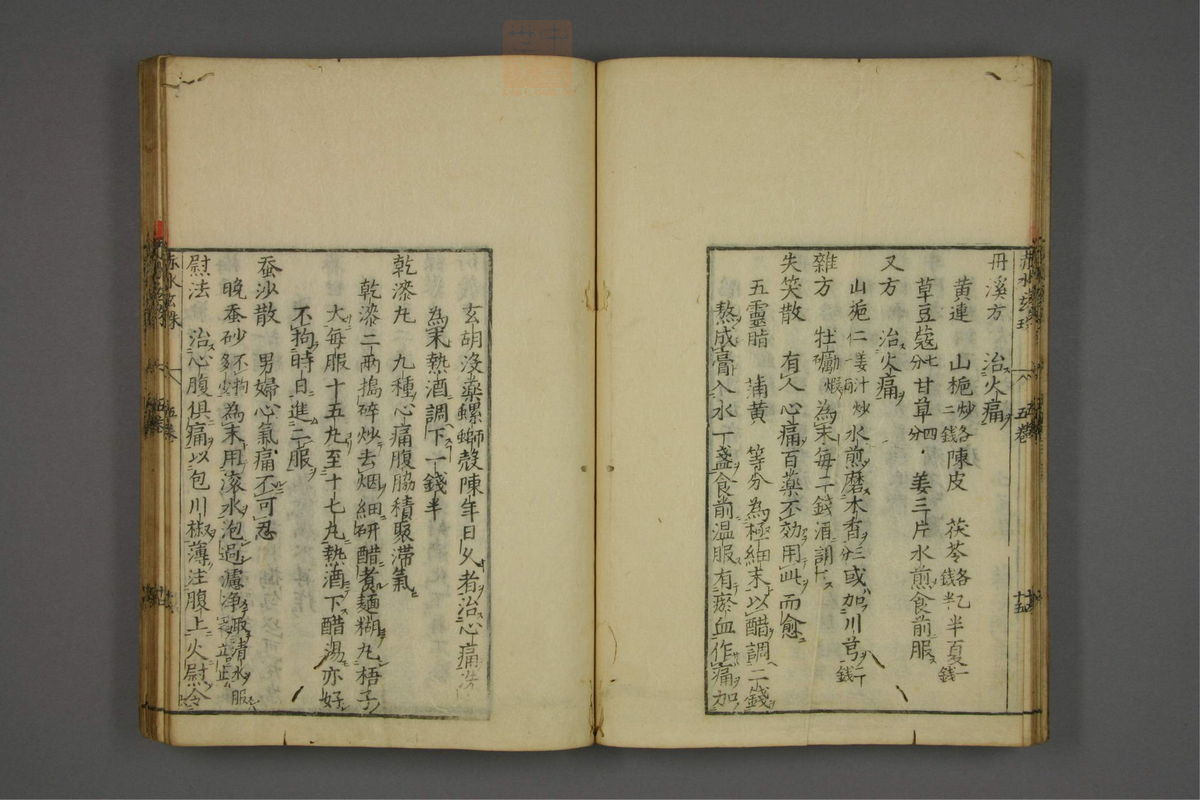 丹溪方　治火痛
黄連　山梔炒各二錢　陳皮　茯苓各錢半　半夏一錢
草豆蔻七分　甘草四分　姜三片水煎食前服
又方　治火痛
山梔仁一両姜汁炒　水煎磨木香三分或加川芎一錢
雜方　牡蠣煅為末每二錢酒調下
失笑散　有人心痛百薬不効用此而愈
五靈脂　蒲黄　等分為極細末以醋調二錢
熬成膏入水一盞食前温服有瘀血作痛加
玄胡没薬螺螄殼陳年日久者治心痛
為末熱酒調下一錢半
乾漆丸　九種心痛腹脇積聚滯氣
乾漆二両搗碎炒去烟細研醋煮麺糊丸梧子
大每服十五丸至十七丸熱酒下醋湯亦好
不拘時日進二服
蚕沙散　男婦心氣痛不可忍
晩蚕砂不拘多少為末用滚水泡過濾浄取清水服
慰法　治心腹俱痛以包川椒薄注腹上火慰令
赤水玄珠
五巻